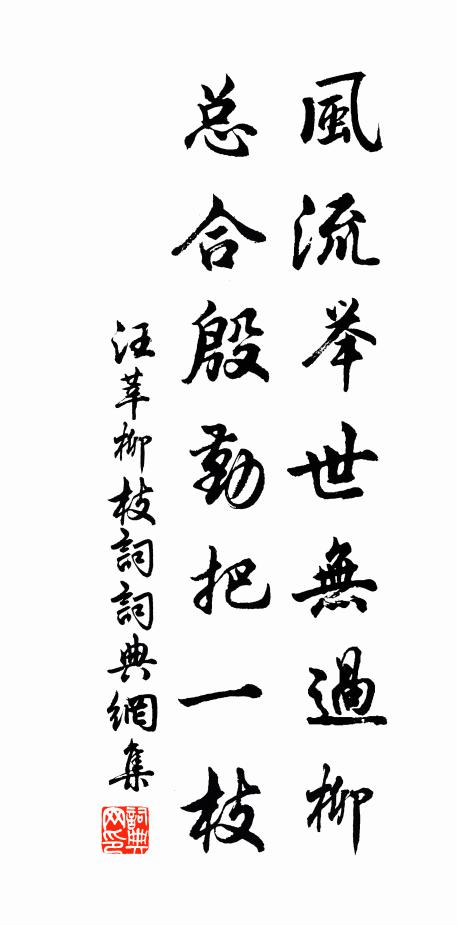 風流举世無過柳
总合殷勤把一枝
汪莘柳枝詞詞典網集
詞典
网印